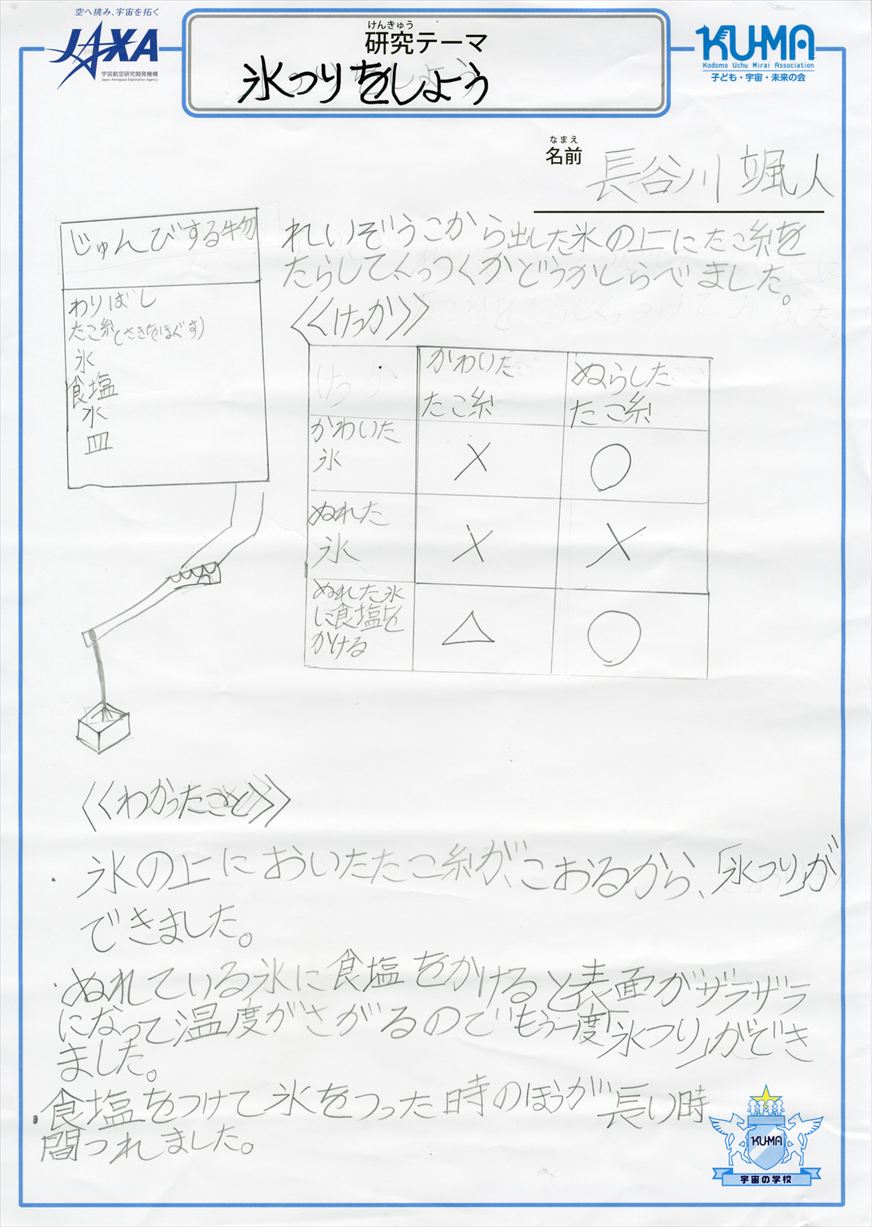 空へ挑み、宇宙を拓く
JAXA
宇宙航空研究開発機構
Japan Aerospace Exploration Agency
けんきゅう
研究テーマ
氷つりをしよう
KU-MA
Kodomo Uchu Mirai Association
子ども・宇宙・未来の会
なまえ
名前
長谷川 颯人
じゅんびする物
わりばし
たこ糸(さきをほぐす)
氷
食塩
水
皿
れいぞうこから出した氷の上にたこ糸を
たらしてくっつくかどうかしらべました。
《けっか》
けっか
かわいた
たこ糸
ぬらした
たこ糸
かわいた
氷
×
○
ぬれた
氷
×
×
ぬれた氷
に食塩を
かける
△
○
《わかったこと》
・氷の上においたたこ糸が、こおるから、「氷つり」が
できました。
・ぬれている氷に食塩をかけると表面がザラザラ
になって温度がさがるのでもう一度「氷つり」ができ
ました。
・食塩をつけて氷をつった時のほうが長い時
間つれました。
KU-MA
宇宙の学校